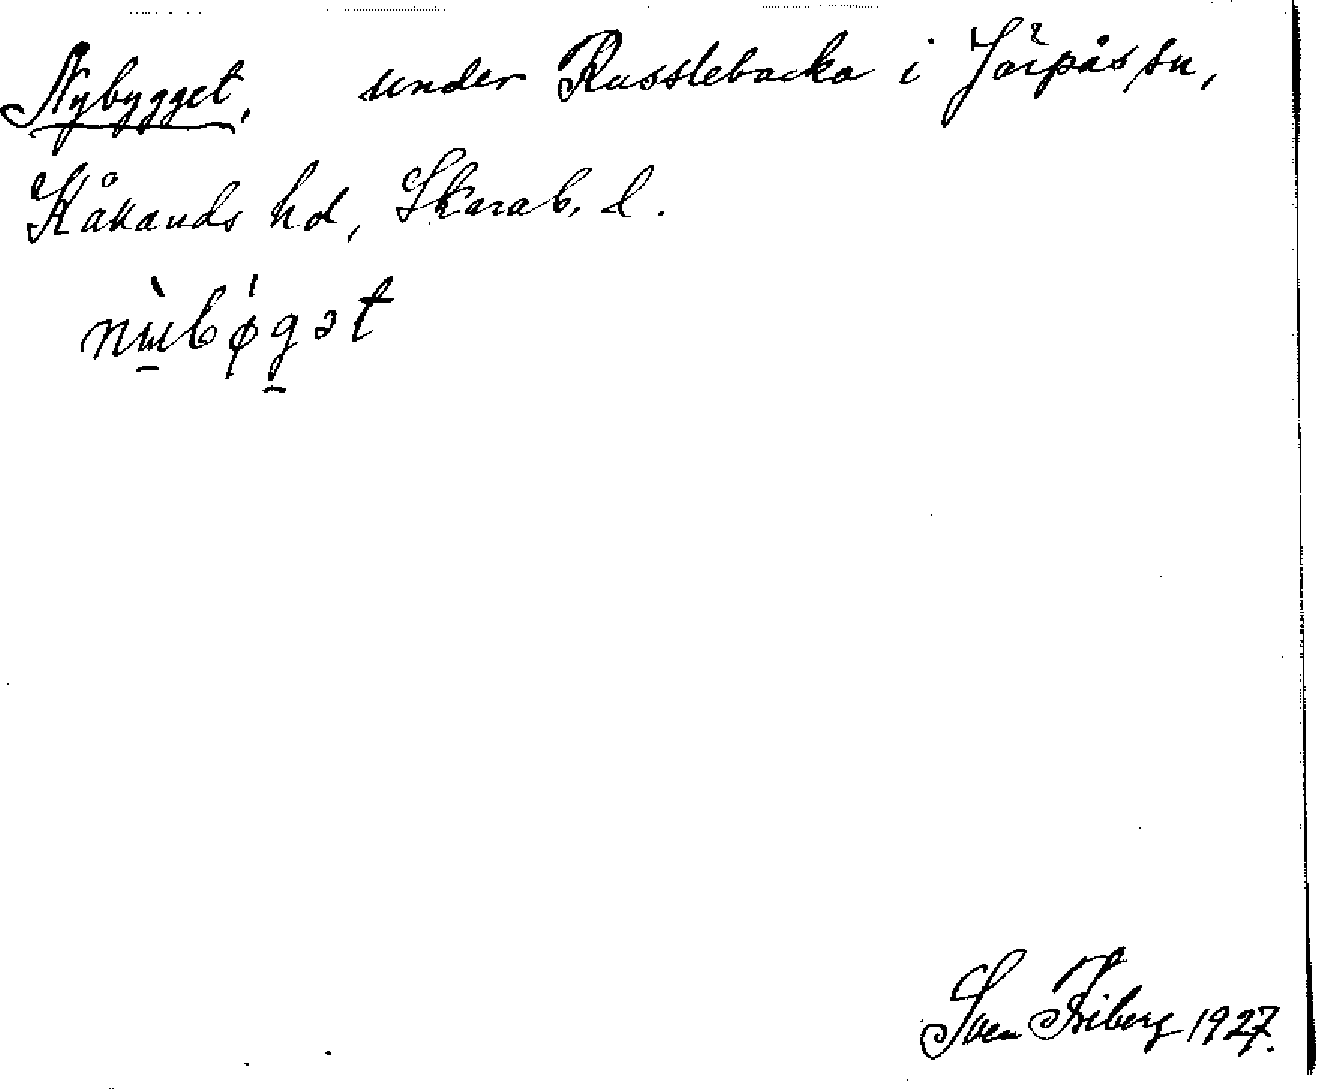 Nybygget, under Russlebacka i Järpås sn,
Kåkands hd, Skarab. l.
nɯ̀bǿgət
Sven Friberg 1927.